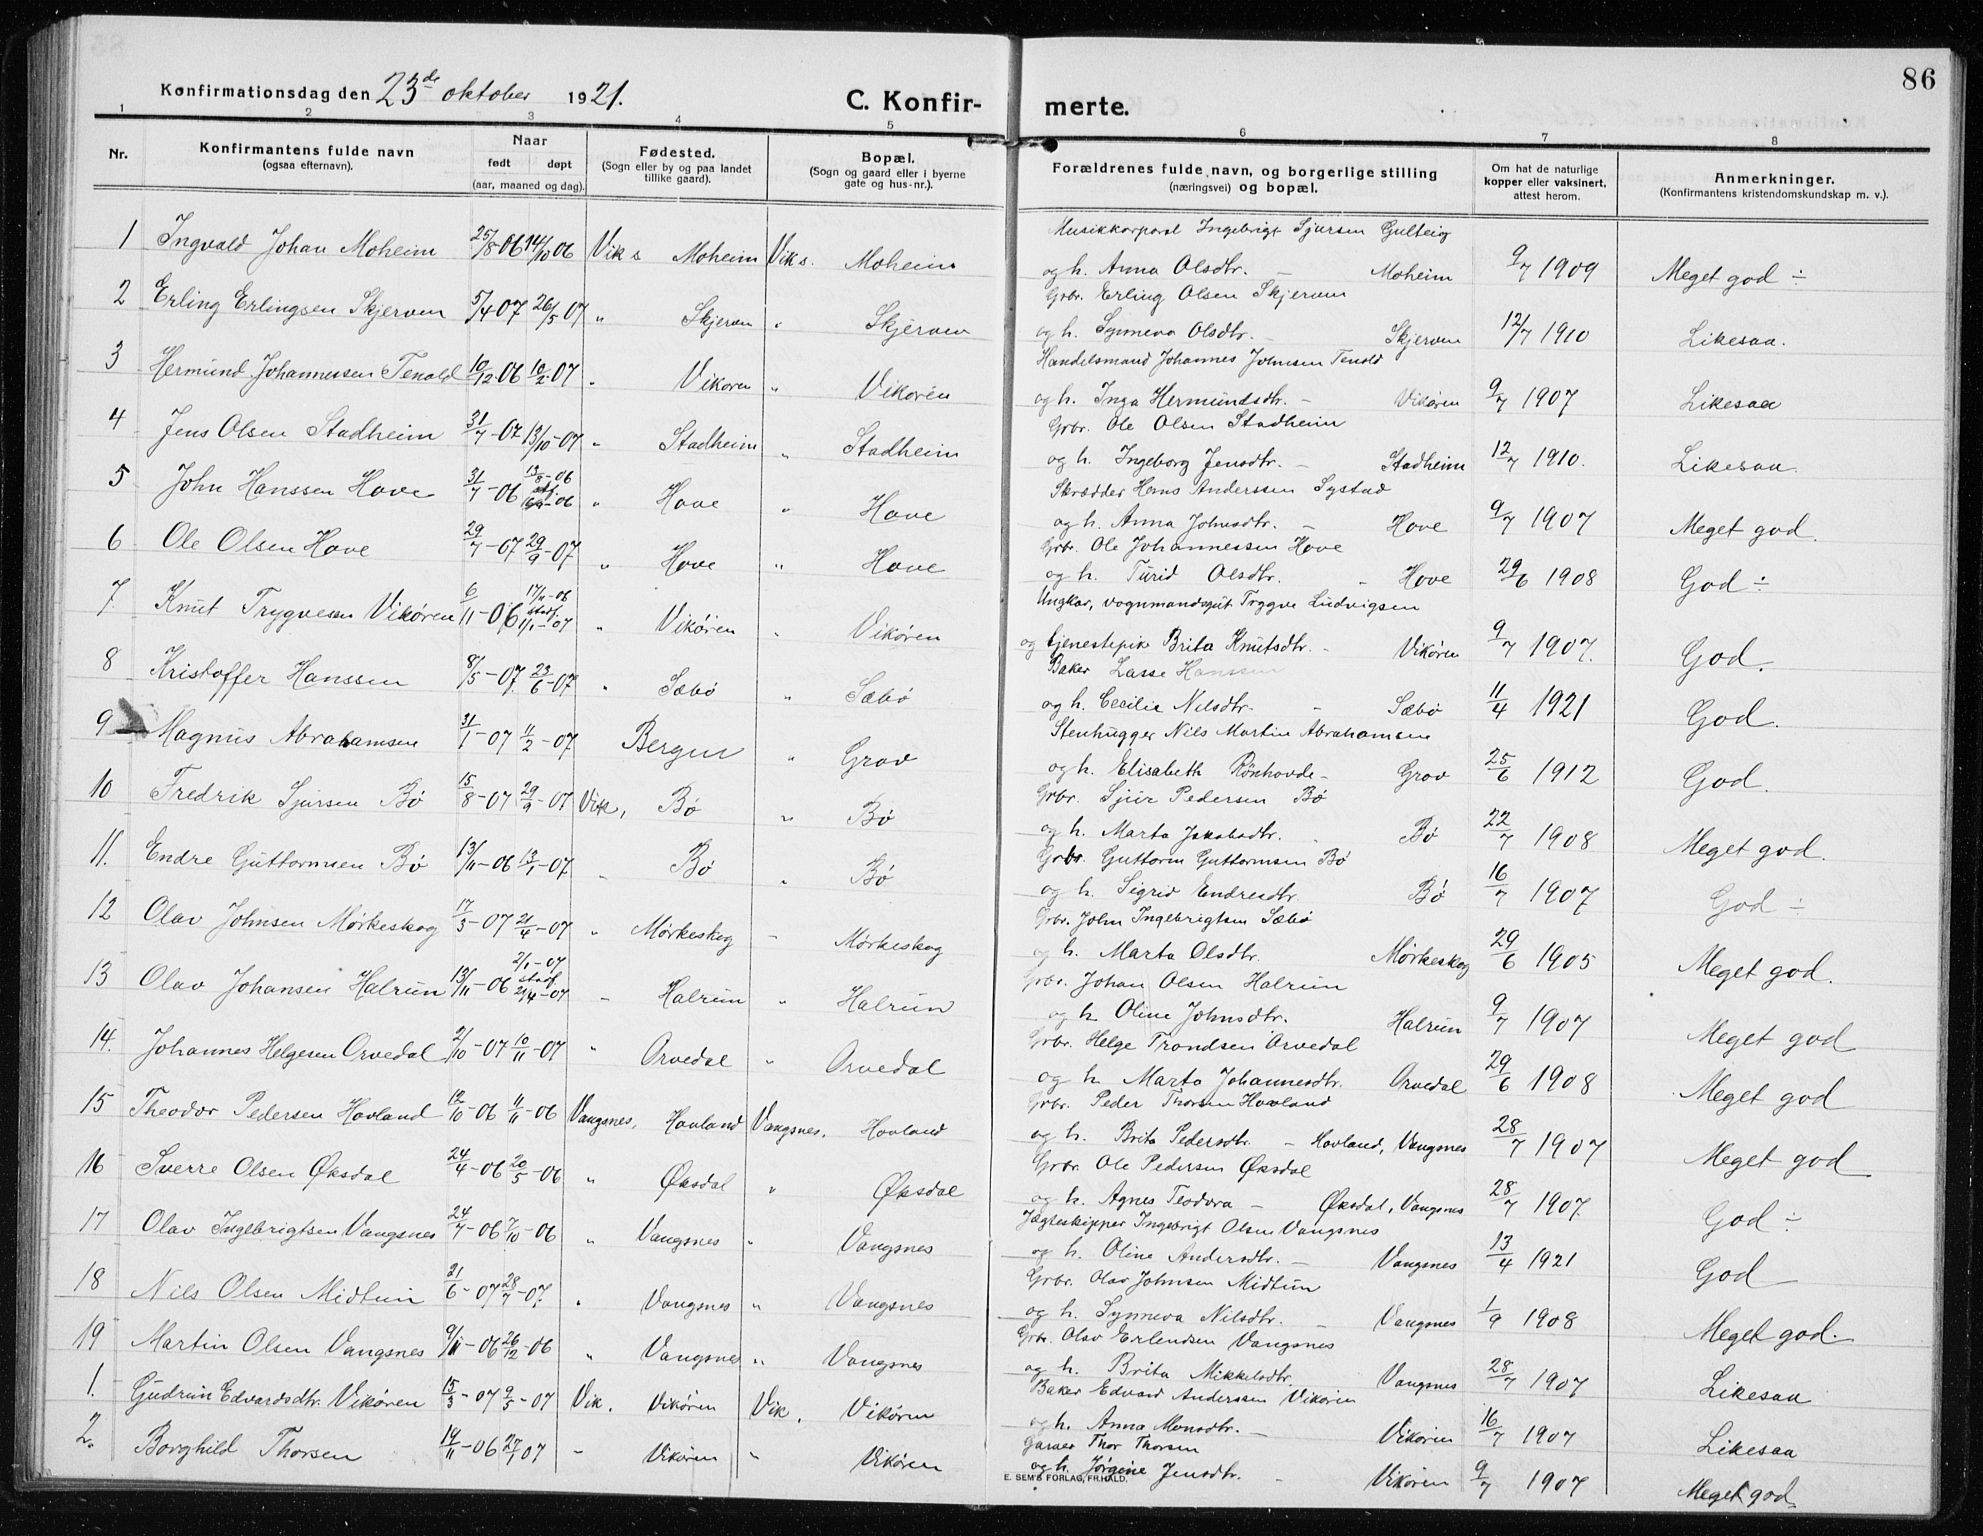 86
Konfirmationsdag den 23de oktober 1921.
C. Konfir- merte.
1 2 3 4 5 6 7 8
Nr. Konfirmantens fulde navn (ogsaa efternavn). Naar født døpt (aar, maaned og dag). Fødested. (Sogn eller by og paa landet tillike gaard). Bopæl. (Sogn og gaard eller i byerne gate og hus-nr.). Forældrenes fulde navn, og borgerlige stilling (næringsvei) og bopæl. Om hat de naturlige kopper eller vaksinert, attest herom. Anmerkninger. (Konfirmantens kristendomskundskap m. v.).
Musikkorporal Ingebrigt Sjursen Gulteig
1 Ingvald Johan Moheim 25/8 06 14/10 06 Vik s Moheim Vik s. Moheim og h. Anna Olsdtr. – Moheim 9/7 1909 Meget god ÷
Grbr. Erling Olsen Skjerven
2 Erling Erlingsen Skjerven 5/4 07 26/5 07 " Skjerven " Skjerven og h. Synneva Olsdtr. Skjerven 12/7 1910 Likesaa.
Handelsmand Johannes Johnsen Tenold
3 Hermund Johannessen Tenold 10/12-06 10/2-07 " Vikøren " Vikøren og h. Inga Hermundsdtr. – Vikøren 9/7 1907 Likesaa
Grbr. Ole Olsen Stadheim
4 Jens Olsen Stadheim 31/7-07 13/10-07 " Stadheim " Stadheim og h. Ingeborg Jensdtr. – Stadheim 12/7 1910. Likesaa.
Skrædder Hans Anderssen Systad
5 John Hanssen Hove 31/7-06 13/8-06 " Hove " Hove og h. Anna Johnsdtr. – Hove 9/7 1907 Meget god.
Grbr. Ole Johannessen Hove
6 Ole Olsen Hove 29/7-07 29/9-07 " Hove " Hove og h. Turid Olsdtr. Hove 29/6 1908 God ÷
Ungkar, vognmandsgut Trygve Ludvigsen
7 Knut Trygvesen Vikøren 6/11-06 17/11-06 stadf. 1/1-07 " Vikøren " Vikøren og tjenestepike Brita Knutsdtr. – Vikøren 9/7 1907. God.
Baker Lasse Hanssen
8 Kristoffer Hanssen 8/5-07 23/6-07 " Sæbø " Sæbø og h. Cecilie Nilsdtr. Sæbø 11/4 1921 God.
Stenhugger Nils Martin Abrahamsen
9 Magnus Abrahamsen 31/1-07 11/2-07 Bergen " Grov og h. Elisabeth Rønhovde – Grov 25/6 1912 God.
Grbr. Sjur Pedersen Bø
10 Fredrik Sjursen Bø 15/8-07 29/9-07 Vik, Bø " Bø og h. Marta Jakobsdtr. Bø 22/7 1908 Meget god.
Grbr. Guttorm Guttormsen Bø
11. Endre Guttormsen Bø 13/11-06 13/1-07 " Bø " Bø og h. Sigrid Endresdtr Bø 16/7 1907 God ÷
Grbr. John Ingebrigtsen Sæbø
12 Olav Johnsen Mørkeskog 17/3-07 21/4-07 " Mørkeskog – Mørkeskog og h. Marta Olsdtr. Mørkeskog 29/6 1905 Meget god.
Grbr. Johan Olsen Halrun
13 Olav Johansen Halrun 13/11-06 2/1-07 stadf. 21/4-07 " Halrun " Halrun og h Oline Johnsdtr. Halrun 9/7 1907 Meget god
Grbr. Helge Trondsen Orvedal
14. Johannes Helgesen Orvedal 2/10-07 10/11-07 " Orvedal " Orvedal og h. Marta Johannesdtr. Orvedal 29/6 1908 Meget god
Grbr. Peder Thorsen Hovland
15 Theodor Pedersen Hovland 12/10-06 11/11-06 Vangsnes, Hovland Vangsnes, Hovland og h. Brita Pedersdtr. – Hovland, Vangsnes 28/7 1907 Meget god
Grbr. Ole Pedersen Øksdal
16 Sverre Olsen Øksdal 24/4-06 20/5-06 " Øksdal " Øksdal og h. Agnes Teodora – Øksdal, Vangsnes 28/7 1907. God ÷
Jægteskipper Ingebrigt Olsen Vangsnes
17 Olav Ingebrigtsen Vangsnes 24/7-06 7/10-06 " Vangsnes " Vangsnes og h. Oline Andersdtr. – Vangsnes 13/4 1921 God
Grbr. Olav Johnsen Midtun
18 Nils Olsen Midtun 21/6-07 28/7-07. " Vangsnes " Vangsnes og h. Synneva Nilsdtr. – Vangsnes 1/9 1908 Meget god.
Grbr. Olav Erlendsen Vangsnes
19 Martin Olsen Vangsnes 9/11-06 26/12-06 " Vangsnes " Vangsnes og h. Brita Mikkelsdtr. Vangsnes 28/7 1907 Likesaa
Baker Edvard Anderssen Vikøren
1. Gudrun Edvardsdtr. Vikøren 15/3-07 9/5-07 Vik. Vikøren Vik. Vikøren og h. Anna Monsdtr. – Vikøren 16/7 1907 Likesaa
Garver Thor Thorsen
2. Borghild Thorsen 19/11-06 27/1 07 " Vikøren " Vikøren og h. Jørgine Jensdtr. – Vikøren 9/7 1907 Meget god
E. SEM'S FORLAG, FR.HALD.